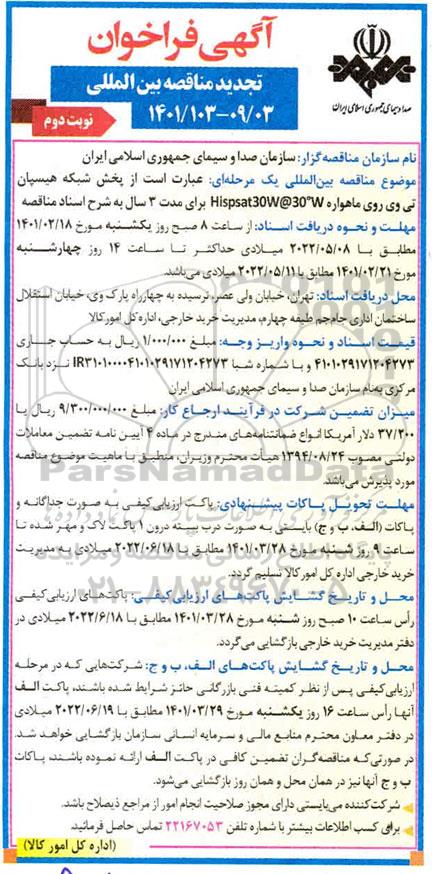 آگهی فراخوان
تجدید مناقصه بین المللی
۱۴۰۱/۱۰۳-۰۹/۰۳
نوبت دوم
صدا و سیمای جمهوری اسلامی ایران
نام سازمان مناقصه‌گزار: سازمان صدا و سیمای جمهوری اسلامی ایران
موضوع مناقصه بین‌المللی یک مرحله‌ای: عبارت است از پخش شبکه هیسپان
تی وی روی ماهواره Hispsat30W@30°W برای مدت ۳ سال به شرح اسناد مناقصه
مهلت و نحوه دریافت اسناد: از ساعت ۸ صبح روز یکشنبه مورخ ۱۴۰۱/۰۲/۱۸
مطابق با ۲۰۲۲/۰۵/۰۸ میلادی حداکثر تا ساعت ۱۴ روز چهارشنبه
مورخ ۱۴۰۱/۰۲/۲۱ مطابق با ۲۰۲۲/۰۵/۱۱ میلادی می‌باشد.
محل دریافت اسناد: تهران، خیابان ولی عصر، نرسیده به چهارراه پارک وی، خیابان استقلال
ساختمان اداری جام‌جم طبقه چهارم، مدیریت خرید خارجی، اداره کل امور کالا
قیمت اسناد و نحوه واریز وجه: مبلغ ۱/۰۰۰/۰۰۰ ریال به حساب جاری
۴۱۰۱۰۲۹۱۷۱۲۰۴۲۷۳ و با شماره شبا IR۳۱۰۱۰۰۰۰۴۱۰۱۰۲۹۱۷۱۲۰۴۲۷۳ نزد بانک
مرکزی به‌نام سازمان صدا و سیمای جمهوری اسلامی ایران
میزان تضمین شرکت در فرآیند ارجاع کار: مبلغ ۹/۳۰۰/۰۰۰/۰۰۰ ریال یا
۳۷/۲۰۰ دلار آمریکا انواع ضمانتنامه‌های مندرج در ماده ۴ آیین نامه تضمین معاملات
دولتی مصوب ۱۳۹۴/۰۸/۲۴ هیأت محترم وزیران، منطبق با ماهیت موضوع مناقصه
مورد پذیرش می‌باشد.
مهلت تحویل پاکات پیشنهادی: پاکت ارزیابی کیفی به صورت جداگانه و
پاکات (الف، ب و ج) بایستی به صورت درب بسته درون ۱ پاکت لاک و مهر شده تا
ساعت ۹ روز شنبه مورخ ۱۴۰۱/۰۳/۲۸ مطابق با ۲۰۲۲/۰۶/۱۸ میلادی به مدیریت
خرید خارجی اداره کل امور کالا تسلیم گردد.
محل و تاریخ گشایش پاکت‌های ارزیابی کیفی: پاکت‌های ارزیابی کیفی
رأس ساعت ۱۰ صبح روز شنبه مورخ ۱۴۰۱/۰۳/۲۸ مطابق با ۲۰۲۲/۶/۱۸ میلادی در
دفتر مدیریت خرید خارجی بازگشایی می‌گردد.
محل و تاریخ گشایش پاکت‌های الف، ب و ج: شرکت‌هایی که در مرحله
ارزیابی کیفی پس از نظر کمیته فنی بازرگانی حائز شرایط شده باشند، پاکت الف
آنها رأس ساعت ۱۶ روز یکشنبه مورخ ۱۴۰۱/۰۳/۲۹ مطابق با ۲۰۲۲/۰۶/۱۹ میلادی
در دفتر معاون محترم منابع مالی و سرمایه انسانی سازمان بازگشایی خواهد شد.
در صورتی‌که مناقصه‌گران تضمین کافی در پاکت الف ارائه نموده باشند، پاکات
ب و ج آنها نیز در همان محل و همان روز بازگشایی می‌شود.
شرکت‌کننده می‌بایستی دارای مجوز صلاحیت انجام امور از مراجع ذیصلاح باشد.
برای کسب اطلاعات بیشتر با شماره تلفن ۲۲۱۶۷۰۵۳ تماس حاصل فرمائید.
(اداره کل امور کالا)
ParsNamadData
۰۲۱-۸۸۳۴۹۶۷۰-۵